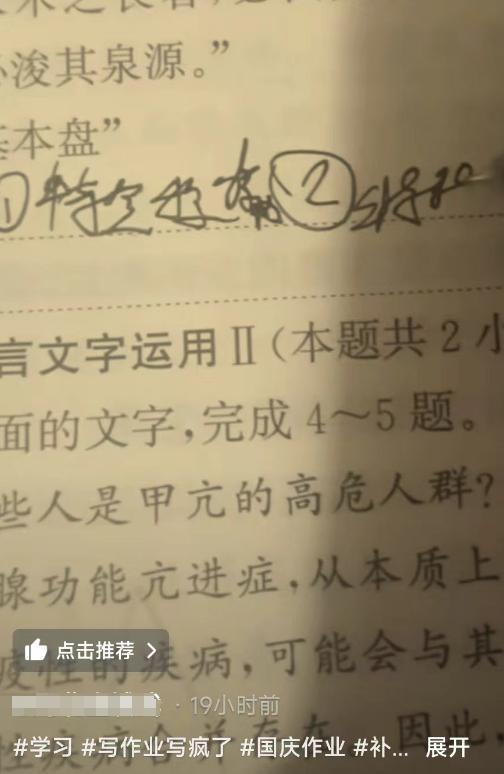 必浚其泉源。”
基本盘”
①特定
②
言文字运用Ⅱ(本题共2小
面的文字,完成4～5题。
些人是甲亢的高危人群?
腺功能亢进症,从本质上
点击推荐
疫性的疾病,可能会与其
· 19小时前
因此,
#学习 #写作业写疯了 #国庆作业 #补... 展开